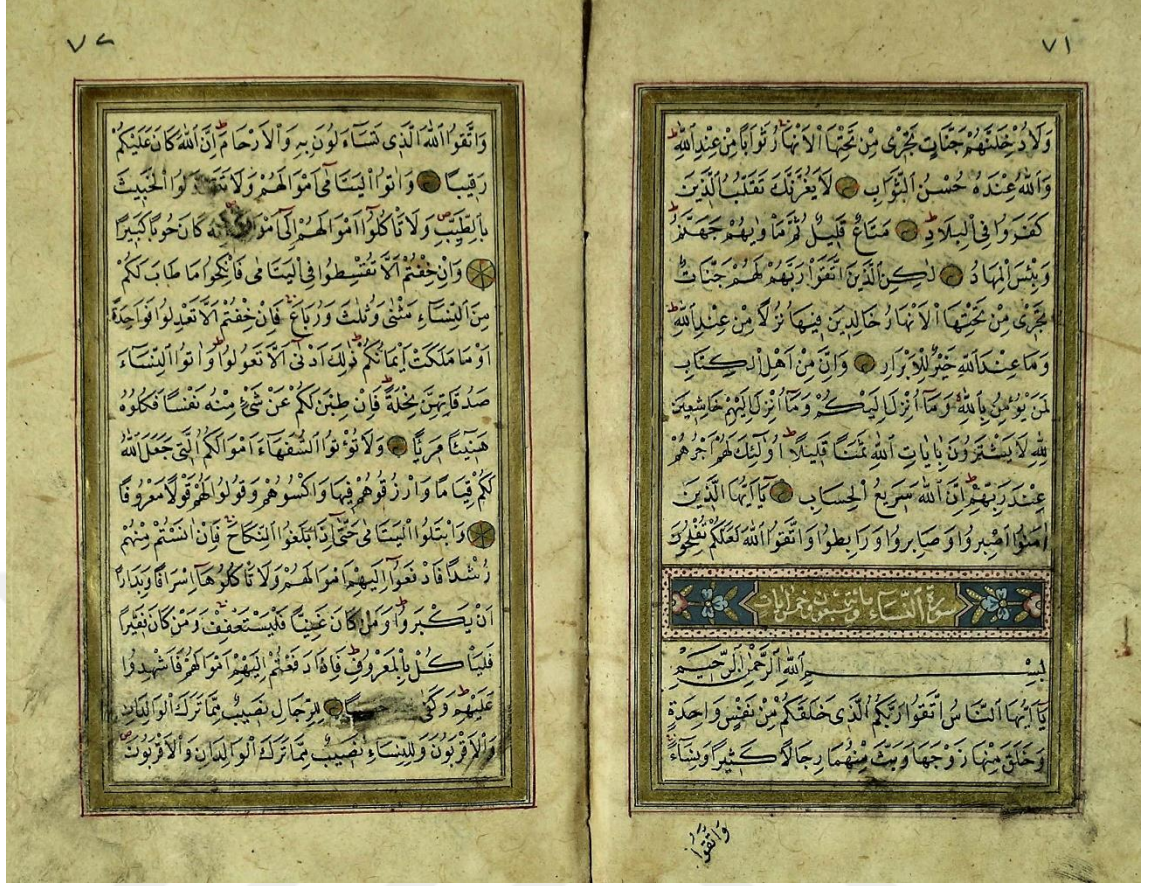 ٧١
وَلَاُدْخِلَنَّهُمْ جَنَّاتٍ تَجْرٖى مِنْ تَحْتِهَا الْاَنْهَارُ ثَوَابًا مِنْ عِنْدِ اللّٰهِ ط
وَاللّٰهُ عِنْدَهُ حُسْنُ الثَّوَابِ لَا يَغُرَّنَّكَ تَقَلُّبُ الَّذٖينَ
كَفَرُوا فِى الْبِلَادِ ط مَتَاعٌ قَلٖيلٌ ثُمَّ مَاْوٰيهُمْ جَهَنَّمُ ط
وَبِئْسَ الْمِهَادُ لٰكِنِ الَّذٖينَ اتَّقَوْا رَبَّهُمْ لَهُمْ جَنَّاتٌ
تَجْرٖى مِنْ تَحْتِهَا الْاَنْهَارُ خَالِدٖينَ فٖيهَا نُزُلًا مِنْ عِنْدِ اللّٰهِ ط
وَمَا عِنْدَ اللّٰهِ خَيْرٌ لِلْاَبْرَارِ وَاِنَّ مِنْ اَهْلِ الْكِتَابِ
لَمَنْ يُؤْمِنُ بِاللّٰهِ وَمَا اُنْزِلَ اِلَيْكُمْ وَمَا اُنْزِلَ اِلَيْهِمْ خَاشِعٖينَ
لِلّٰهِ لَا يَشْتَرُونَ بِاٰيَاتِ اللّٰهِ ثَمَنًا قَلٖيلًا ط اُولٰئِكَ لَهُمْ اَجْرُهُمْ
عِنْدَ رَبِّهِمْ ط اِنَّ اللّٰهَ سَرٖيعُ الْحِسَابِ يَا اَيُّهَا الَّذٖينَ
اٰمَنُوا اصْبِرُوا وَصَابِرُوا وَرَابِطُوا وَاتَّقُوا اللّٰهَ لَعَلَّكُمْ تُفْلِحُونَ
سورة النساء مائة وسبعون وخمس ايات
بِسْمِ اللّٰهِ الرَّحْمٰنِ الرَّحٖيمِ
يَا اَيُّهَا النَّاسُ اتَّقُوا رَبَّكُمُ الَّذٖى خَلَقَكُمْ مِنْ نَفْسٍ وَاحِدَةٍ
وَخَلَقَ مِنْهَا زَوْجَهَا وَبَثَّ مِنْهُمَا رِجَالًا كَثٖيرًا وَنِسَاءً
وَاتَّقُوا
٧٢
وَاتَّقُوا اللّٰهَ الَّذٖى تَسَاءَلُونَ بِهٖ وَالْاَرْحَامَ ط اِنَّ اللّٰهَ كَانَ عَلَيْكُمْ
رَقٖيبًا وَاٰتُوا الْيَتَامٰى اَمْوَالَهُمْ وَلَا الْخَبٖيثَ
بِالطَّيِّبِ وَلَا تَاْكُلُوا اَمْوَالَهُمْ اِلٰى كَانَ حُوبًا كَبٖيرًا
وَاِنْ خِفْتُمْ اَلَّا تُقْسِطُوا فِى الْيَتَامٰى فَانْكِحُوا مَا طَابَ لَكُمْ
مِنَ النِّسَاءِ مَثْنٰى وَثُلٰثَ وَرُبَاعَ فَاِنْ خِفْتُمْ اَلَّا تَعْدِلُوا فَوَاحِدَةً
اَوْ مَا مَلَكَتْ اَيْمَانُكُمْ ط ذٰلِكَ اَدْنٰى اَلَّا تَعُولُوا ط وَاٰتُوا النِّسَاءَ
صَدُقَاتِهِنَّ نِحْلَةً ط فَاِنْ طِبْنَ لَكُمْ عَنْ شَىْءٍ مِنْهُ نَفْسًا فَكُلُوهُ
هَنٖيئًا مَرٖيئًا وَلَا تُؤْتُوا السُّفَهَاءَ اَمْوَالَكُمُ الَّتٖى جَعَلَ اللّٰهُ
لَكُمْ قِيَامًا وَارْزُقُوهُمْ فٖيهَا وَاكْسُوهُمْ وَقُولُوا لَهُمْ قَوْلًا مَعْرُوفًا
وَابْتَلُوا الْيَتَامٰى حَتّٰى اِذَا بَلَغُوا النِّكَاحَ فَاِنْ اٰنَسْتُمْ مِنْهُمْ
رُشْدًا فَادْفَعُوا اِلَيْهِمْ اَمْوَالَهُمْ وَلَا تَاْكُلُوهَا اِسْرَافًا وَبِدَارًا
اَنْ يَكْبَرُوا ط وَمَنْ كَانَ غَنِيًّا فَلْيَسْتَعْفِفْ وَمَنْ كَانَ فَقٖيرًا
فَلْيَاْكُلْ بِالْمَعْرُوفِ ط فَاِذَا دَفَعْتُمْ اِلَيْهِمْ اَمْوَالَهُمْ فَاَشْهِدُوا
عَلَيْهِمْ ط وَكَفٰى لِلرِّجَالِ نَصٖيبٌ مِمَّا تَرَكَ الْوَالِدَانِ
وَالْاَقْرَبُونَ وَلِلنِّسَاءِ نَصٖيبٌ مِمَّا تَرَكَ الْوَالِدَانِ وَالْاَقْرَبُونَ